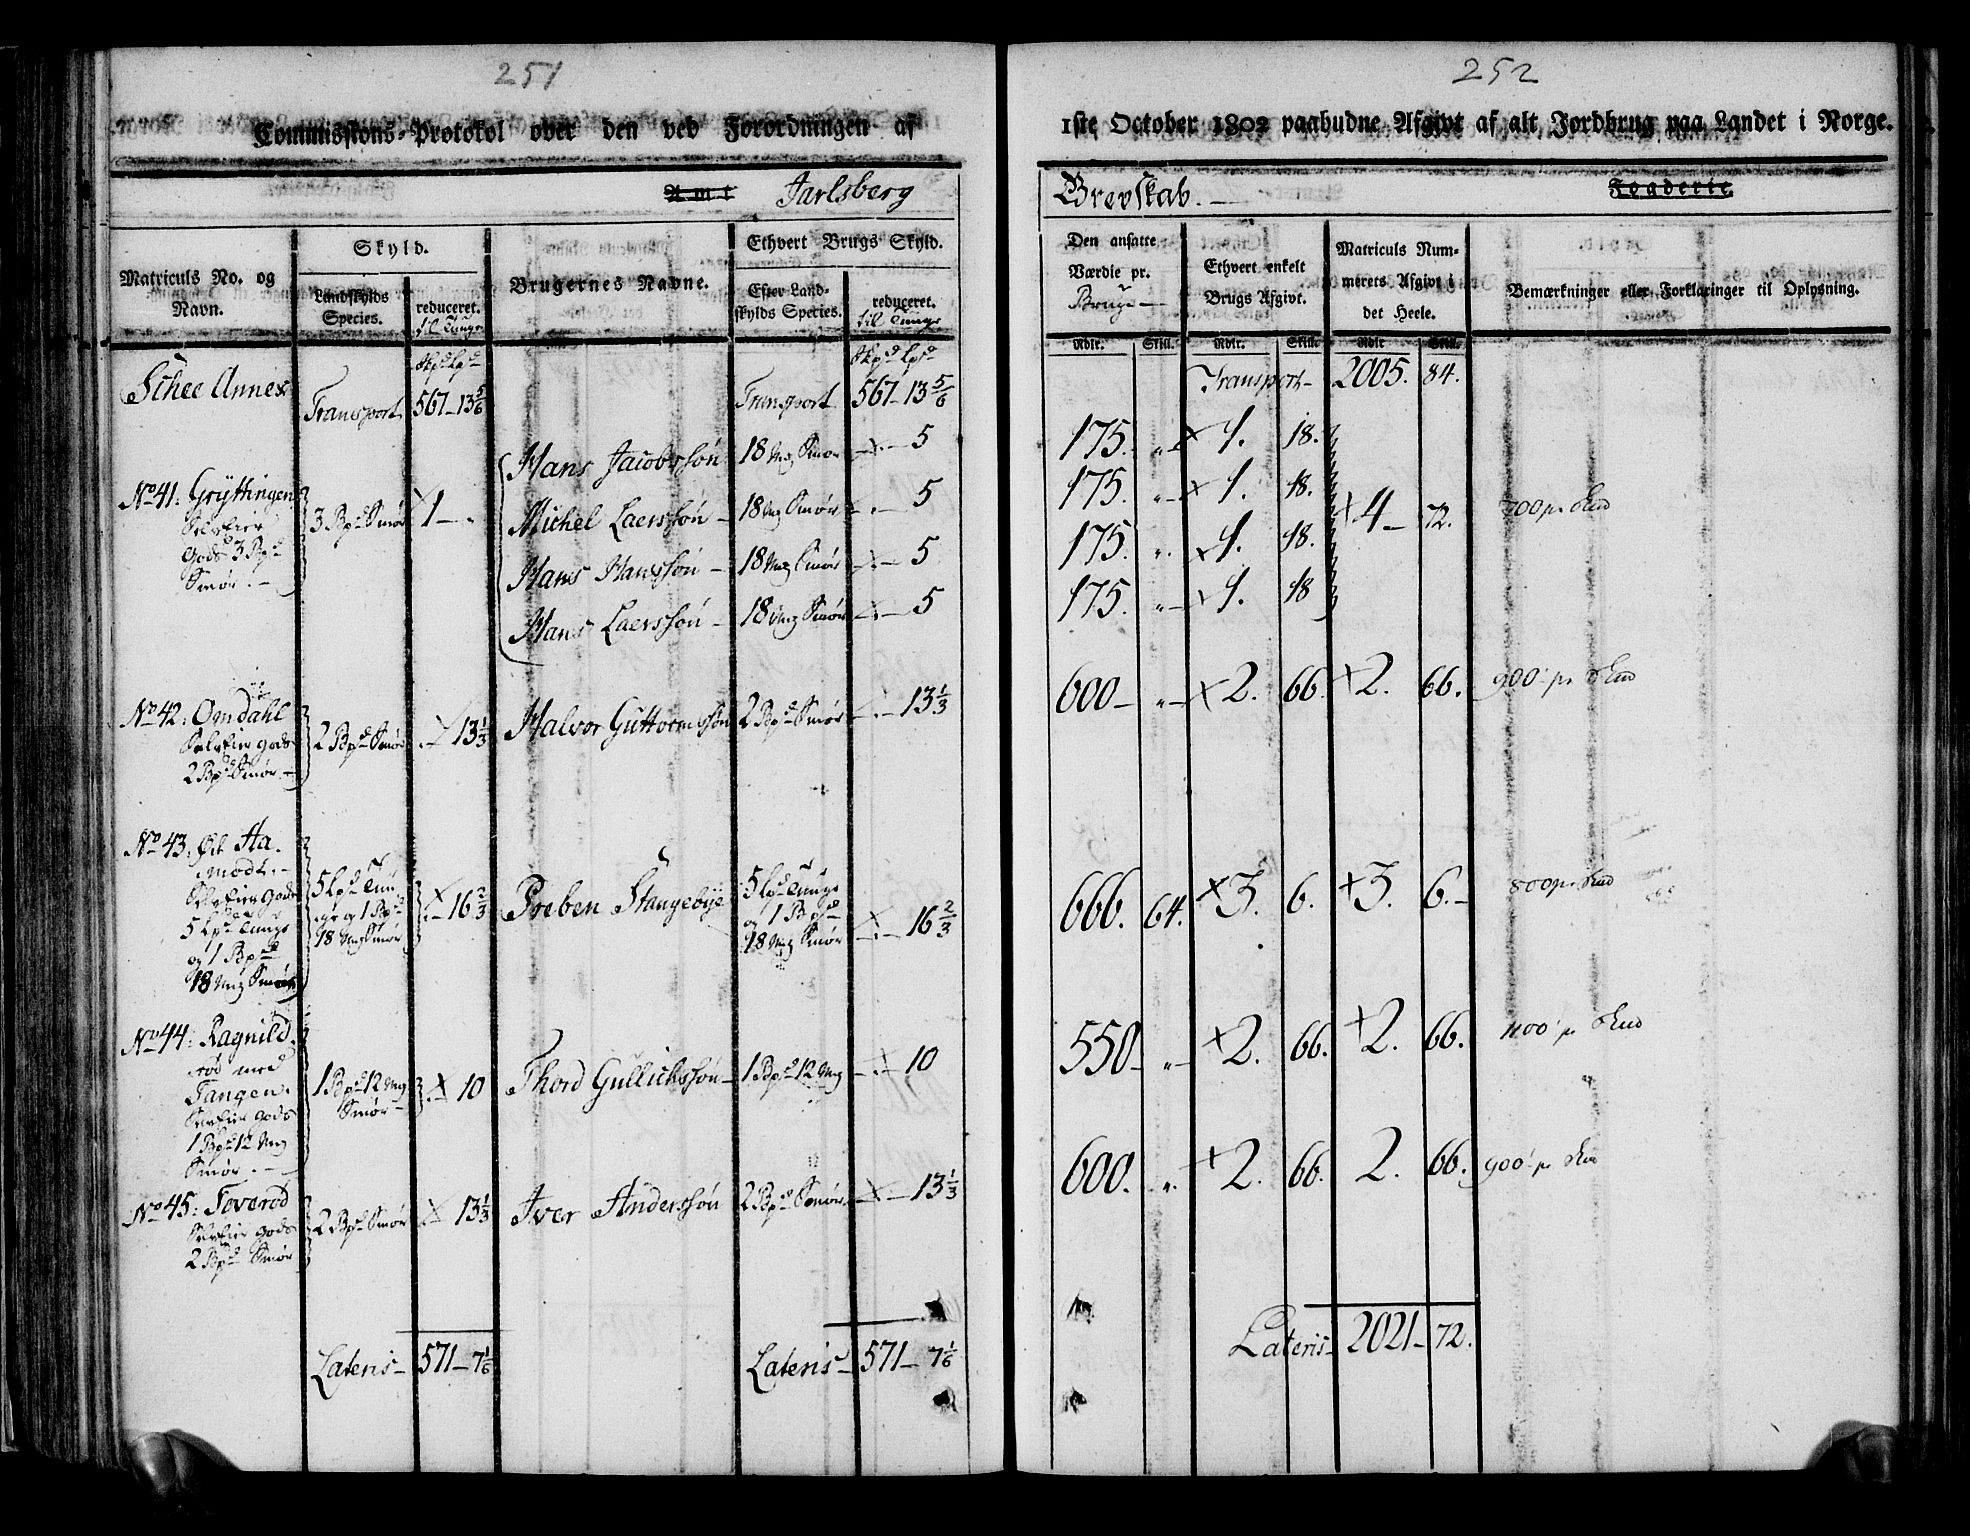 251
Commissions-Protokol over den ved Forordningen af
Amt Jarlsberg
Matriculs No. og Navn.
Skyld.
Landskylds Species.
reduceret. til Tunge
Brugernes Navne.
Ethvert Brugs Skyld.
Efter Landskylds Species.
reduceret. til Tunge
Schee Annex
Transport 567 - 13 5/6
Transport 567 - 13 5/6
No 41: Grÿttingen
Selveier
Gods 3 Bpd
Smør. -
3 Bpd Smør
1 - .
Hans Jacobssøn 18 Mg Smør . - 5
Michel Laerssøn - 18 Mg Smør . - 5
Hans Hanssøn - 18 Mg Smør . - 5
Hans Laerssøn - 18 Mg Smør . - 5
No 42: Omdahl
Selveier Gods
2 Bpd Smør. -
2 Bpd Smør
. - 13 1/3
Halvor Guttormssøn 2 Bpd Smør . - 13 1/3
No 43: Øde Ha-
modt. -
Selveier Gods
5 Lpd Tunge
og 1 Bpd
18 Mg Smør
5 Lpd Tun-
ge og 1 Bpd
18 Mg Smør
. - 16 2/3
Preben Stangebÿe
5 Lpd Tunge
og 1 Bpd
18 Mg Smør
. - 16 2/3
No 44: Ragnild-
rød med
Tangen.
Selveier Gods
1 Bpd 12 Mg
Smør. -
1 Bpd 12 Mg
Smør -
. - 10
Thord Gullichssøn - 1 Bpd 12 Mg . - 10
No 45: Toverød
Selveier Gods
2 Bpd Smør
2 Bpd Smør
. 13 1/3
Iver Anderssøn 2 Bpd Smør . - 13 1/3
Lateris - 571 - 7 1/6
Lateris - 571 - 7 1/6
252
1ste October 1802 paabudne Afgivt af alt Jordbrug paa Landet i Norge.
Grevskab. - Fogderie
Den ansatte Værdie pr. Brug -
Ethvert enkelt Brugs Afgivt.
Matriculs Nummerets Afgivt i det Heele.
Bemærkninger eller Forklaringer til Oplysning.
Rdlr. Skill. Rdlr. Skill. Rdlr Skill.
Transport - 2005. 84.
175. „ - 1. 18.
175. „ - 1. 18.
4 - 72. 700 pr
175. „ 1. 18.
175. „ - 1. 18
600 - „ - 2. 66. 2. 66. 900 pr
666. 64. 3. 6. 3. 6. - 800 pr
550 - „ - 2. 66. 2. 66. 1100 pr
600. „ 2. 66. 2. 66. 900 pr
Lateris - 2021 - 72.